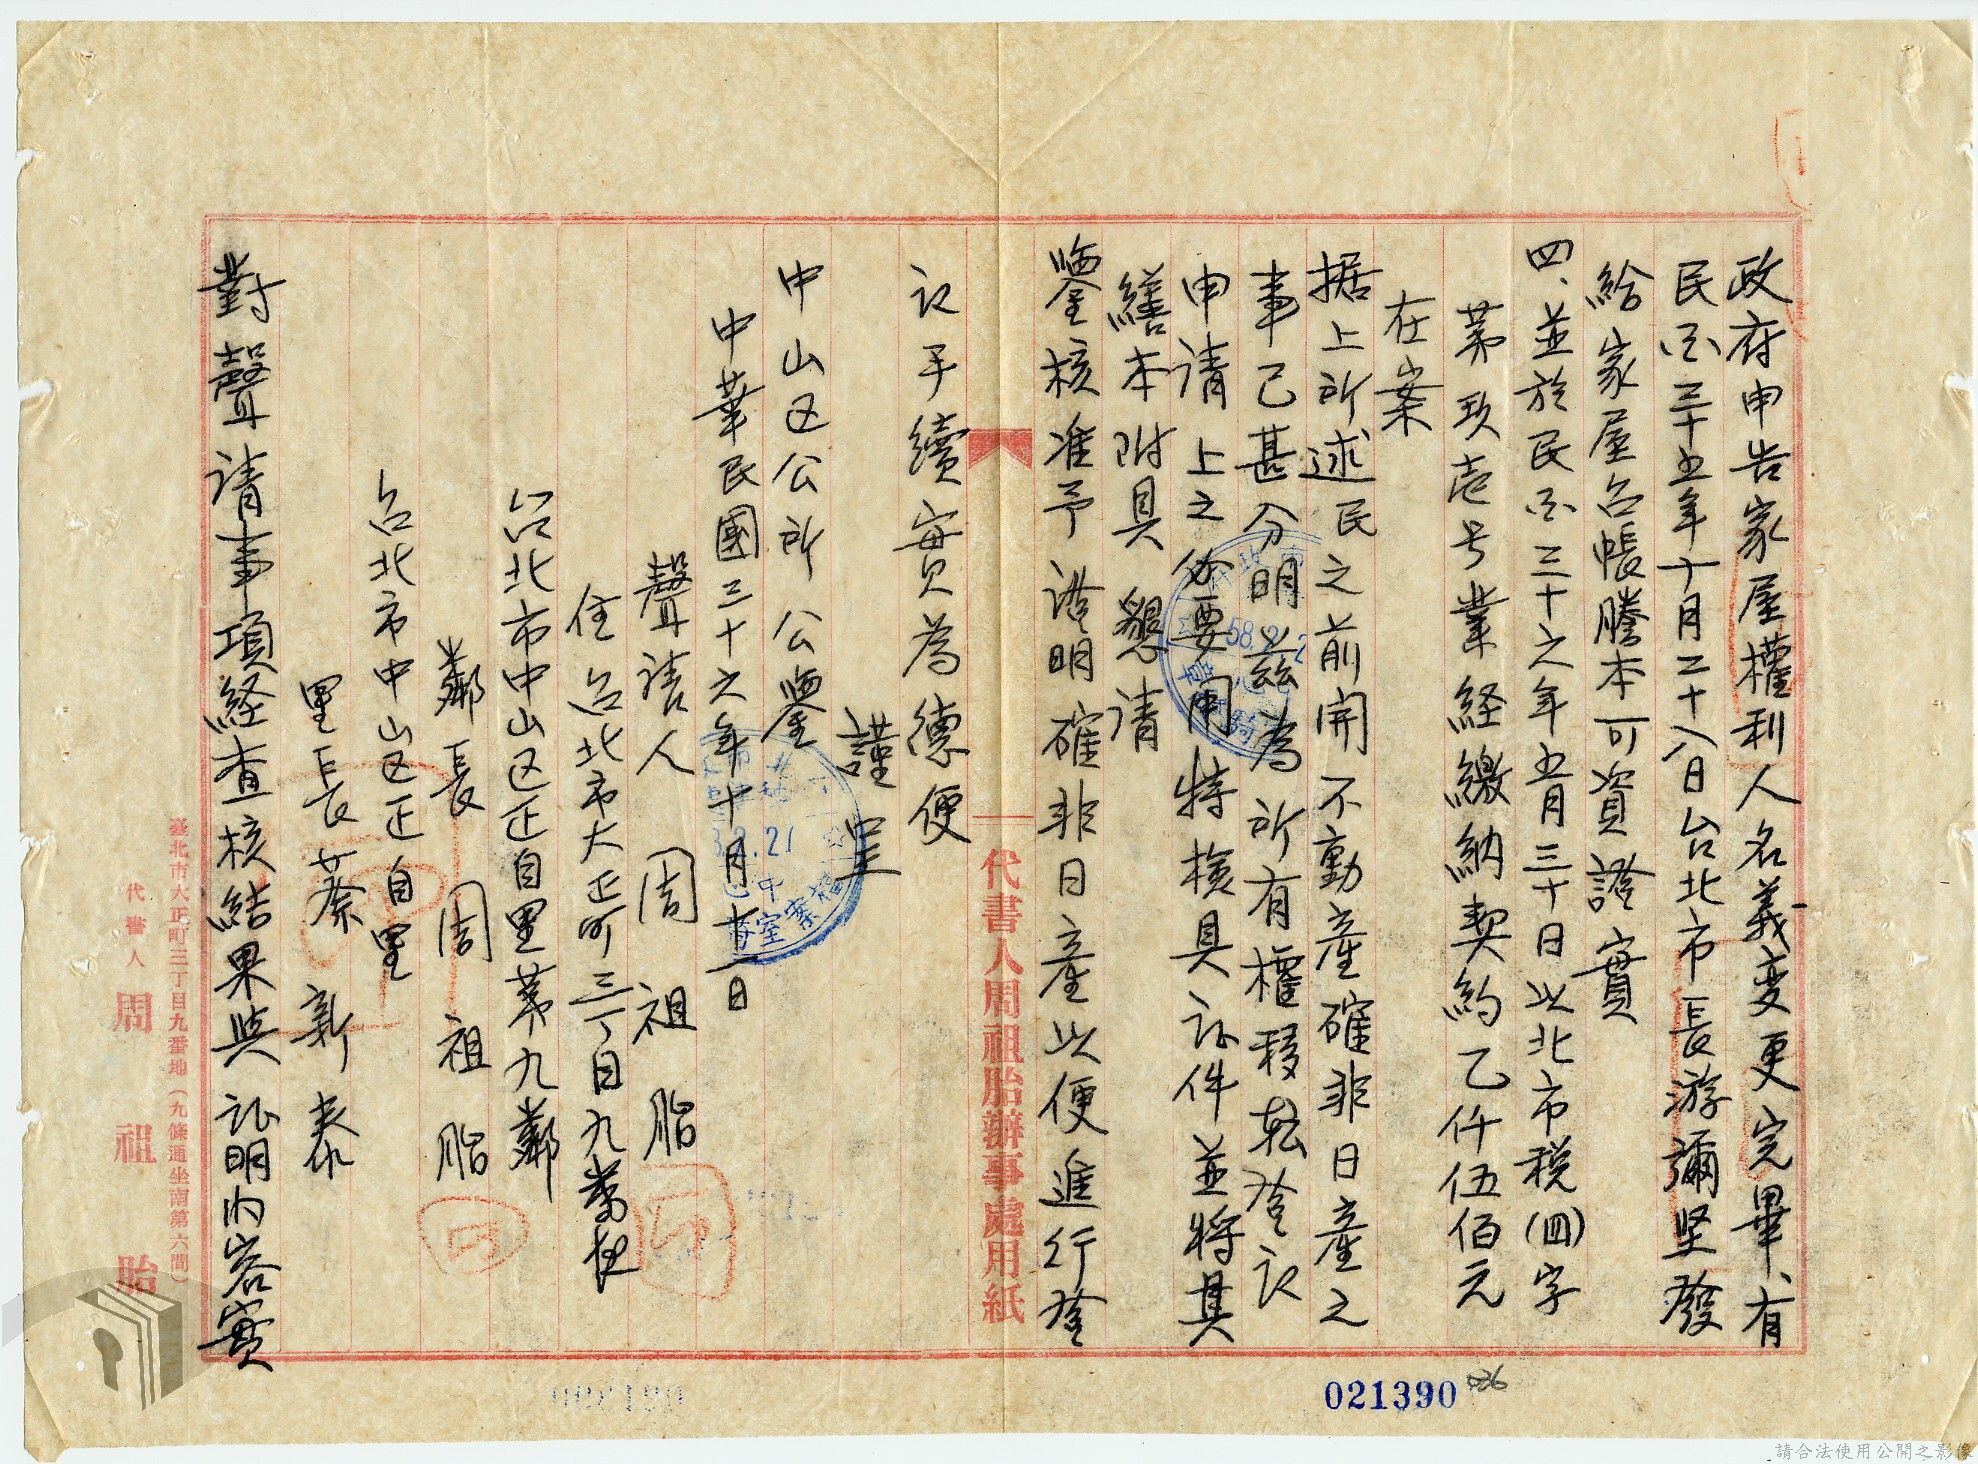 政府申告家屋權利人名義变更完畢、有
民国三十五年十月二十八日台北市長游彌堅發
給家屋台帳謄本可資證實
四、並於民国三十六年五月三十日北市税(四)字
第玖壱号業経繳納契約乙仟伍佰元
在案
据上所述民之前開不動產確非日產之
事已甚分明茲為所有權移転登记
申请上之必要用特檢具证件並將其
繕本附具 懇请
鑒核准予證明確非日產以便進行登
记手續實為德便
謹呈
中山区公所 公鑒
中華民國三十六年十月 日
聲请人 周祖胎
住台北市大正町三丁目九番地
台北市中山区正自里第九鄰
鄰長 周祖胎
台北市中山区正自里
里長 蔡新泰
對聲请事項経查核結果與证明內容實
代書人周祖胎辦事處用紙
臺北市大正町三丁目九番地(九條通坐南第六間)
代書人 周祖胎
58.2.2
.2.21
檔案室
021390
請合法使用公開之影像